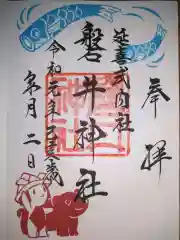 奉拝
延喜式内社
磐井神社
令和元年己亥歳
月二日